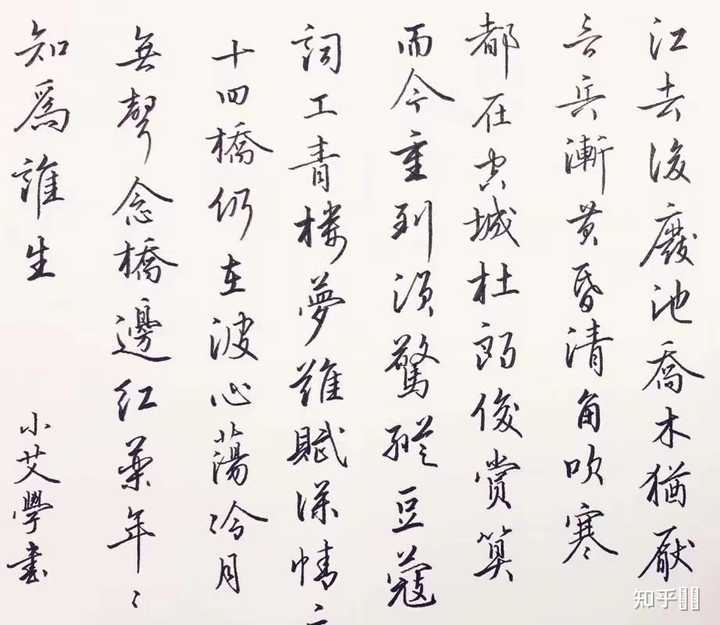 江去後廢池喬木猶厭
言兵漸黃昏清角吹寒
都在空城杜郎俊賞算
而今重到須驚縱豆蔻
詞工青樓夢難賦深情二
十四橋仍在波心蕩冷月
無聲念橋邊紅藥年〻
知爲誰生
小艾學書
知乎